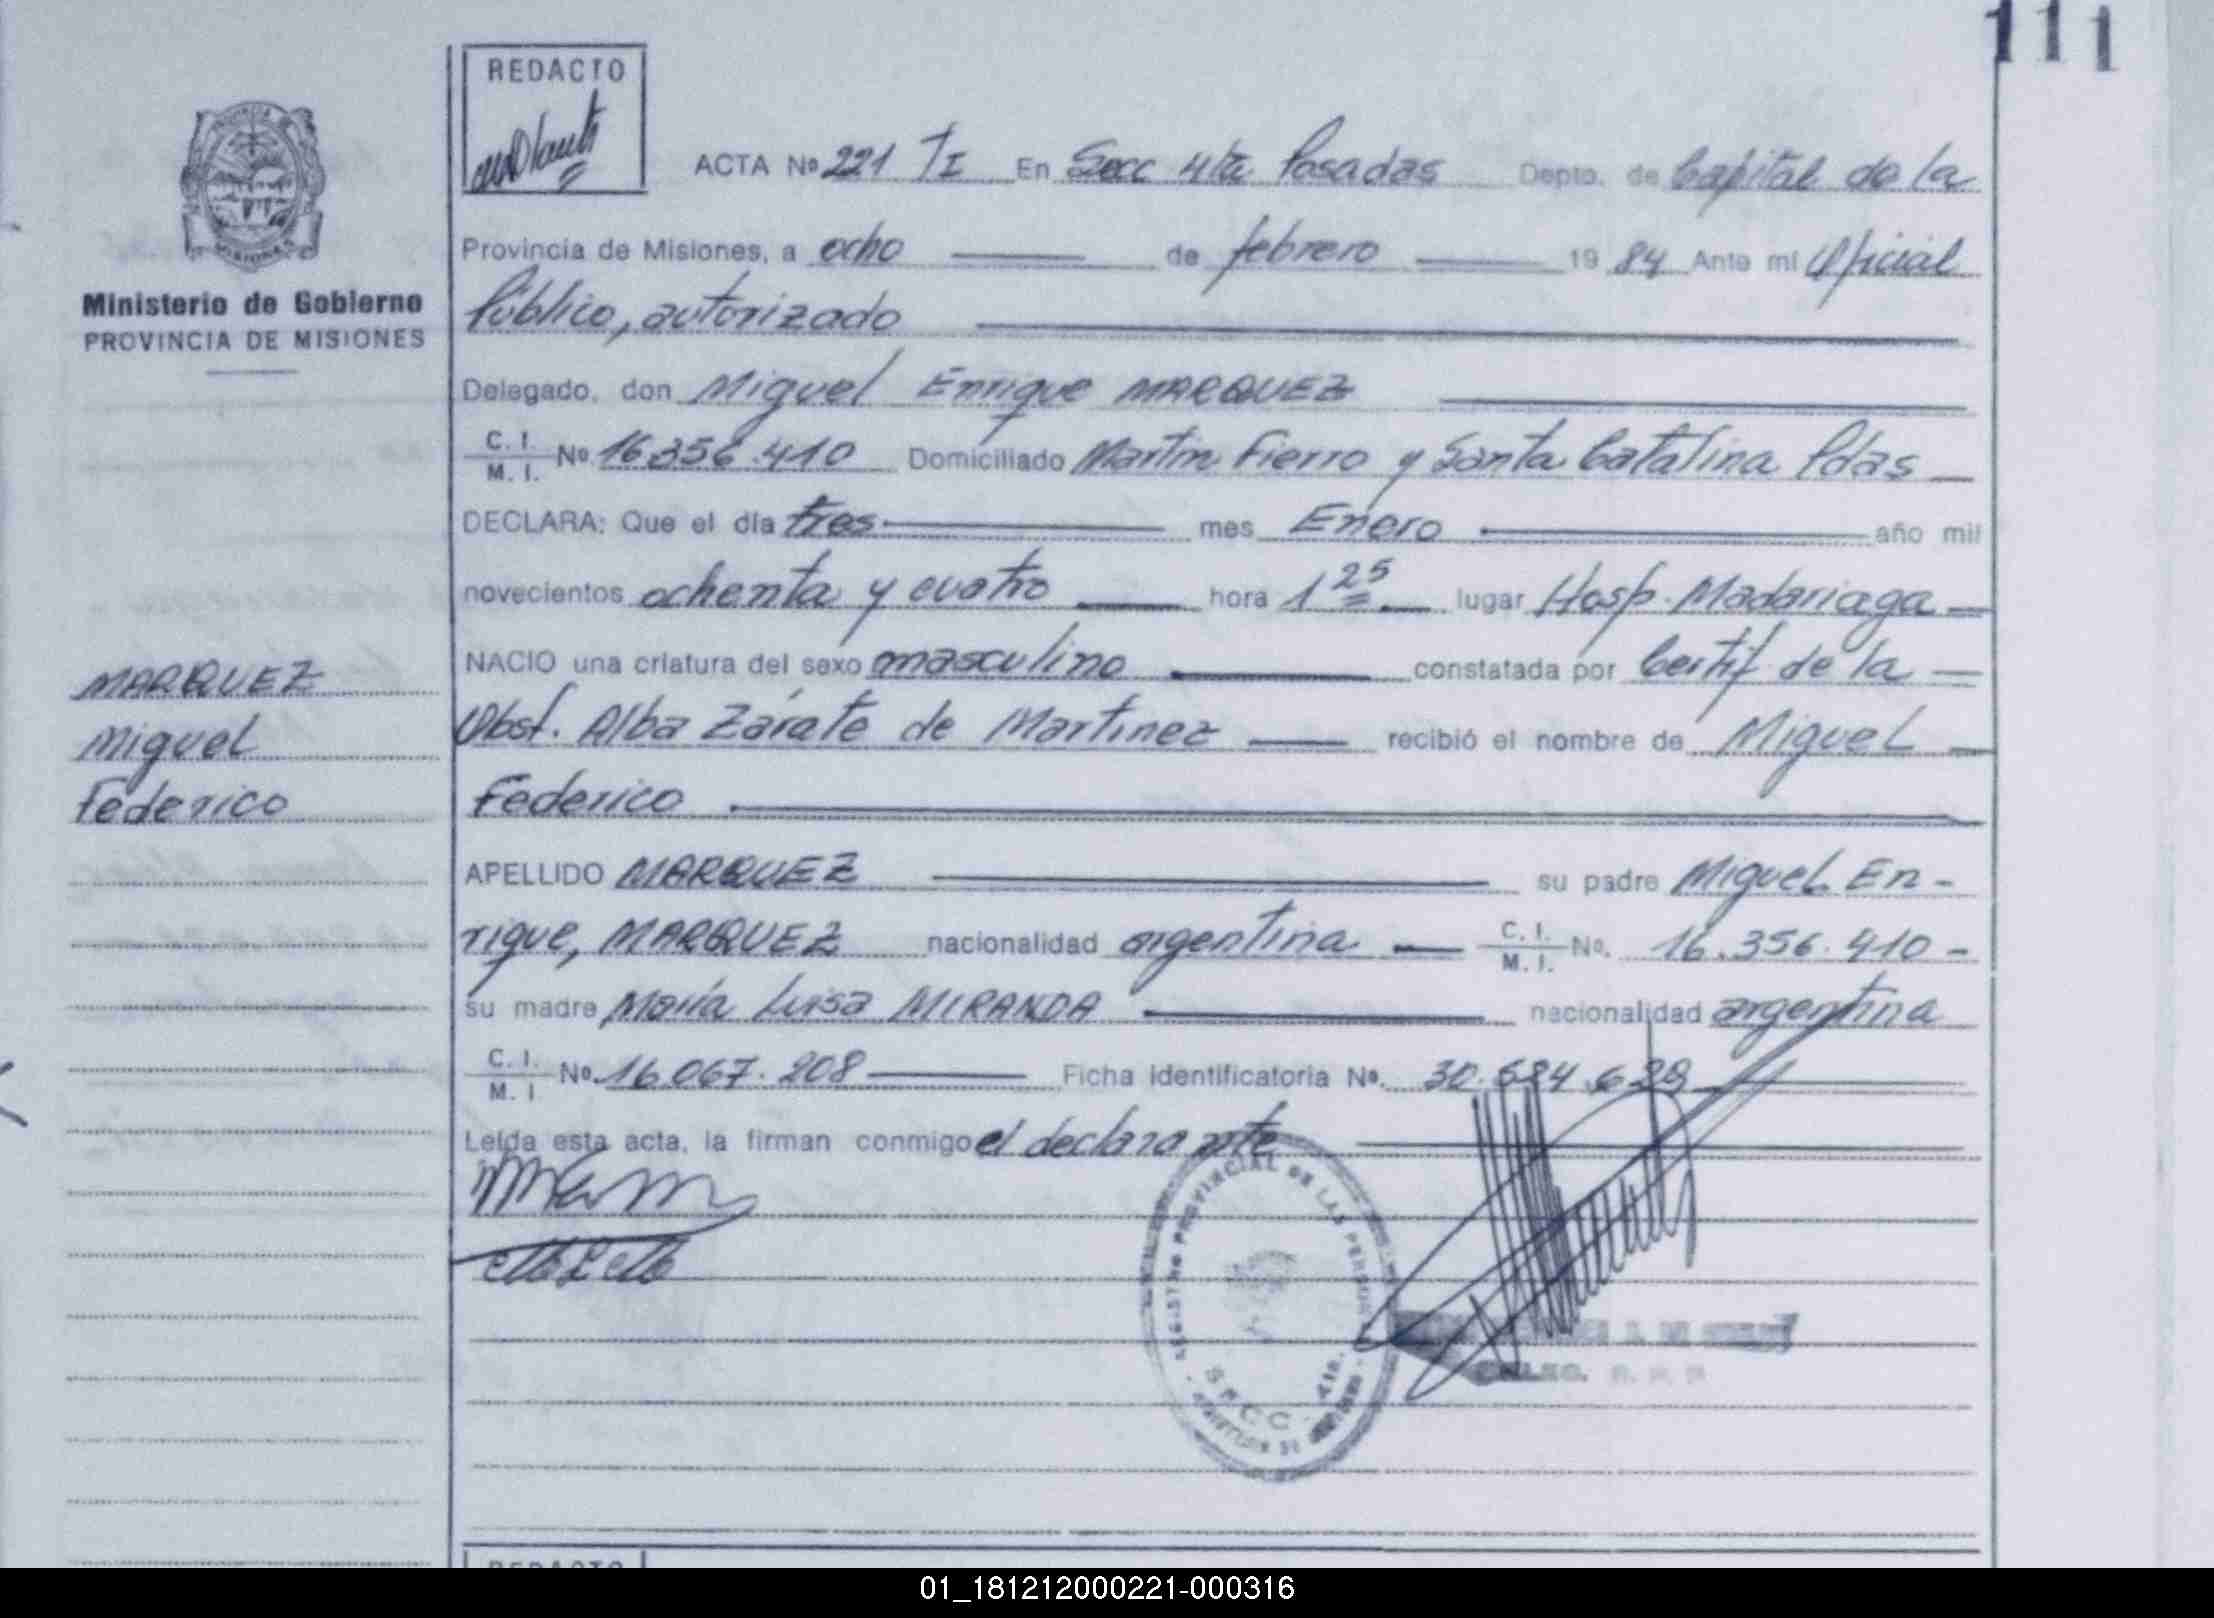 111
REDACTO
ACTA Nº 221 TI En Secc 4ta Posadas Depto. de Capital de la
Provincia de Misiones, a ocho de febrero 19 84 Ante mí Oficial
Público, autorizado
Ministerio de Gobierno
PROVINCIA DE MISIONES
Delegado, don Miguel Enrique MARQUEZ
C. I. M. I. Nº 16.356.410 Domiciliado Martín Fierro y Santa Catalina Pdas
DECLARA: Que el día tres mes Enero año mil
novecientos ochenta y cuatro hora 1 25 lugar Hosp. Madariaga
NACIO una criatura del sexo masculino constatada por Certif de la
Obst. Alba Zárate de Martinez recibió el nombre de Miguel
Federico
MARQUEZ
Miguel
Federico
APELLIDO MARQUEZ su padre Miguel En-
rique, MARQUEZ nacionalidad argentina C. I. M. I. Nº. 16.356.410-
su madre María Luisa MIRANDA nacionalidad argentina
C. I. M. I Nº 16.067.208 Ficha Identificatoria Nº. 30.
Leída esta acta, la firman conmigo el declarante
REGISTRO PROVINCIAL DE LAS PERSONAS
SECC. 4ta.
REDACTO
01_181212000221-000316